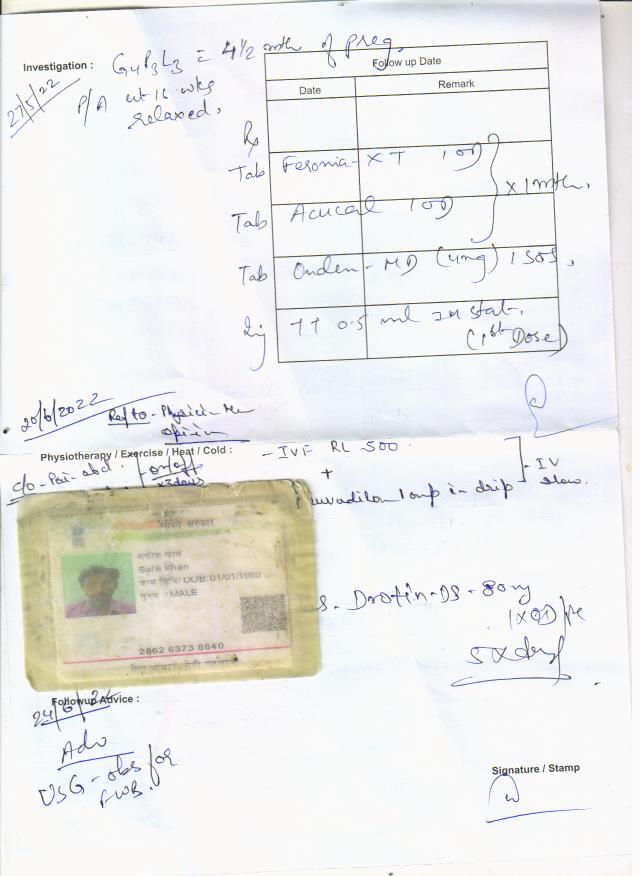 Investigation :
G4P3L3 = 4 1/2 mth of preg.
27/5/22
P/A ut 16 wks
relaxed,
Follow up Date
Date
Remark
Rx
Tab Feronia-XT 1 OD
Tab Acucal 1 OD
x 1 mth,
Tab Onden-MD (4mg) 1 SOS,
Inj TT 0.5 ml IM Stat.
(1st Dose)
20/6/2022
Ref to - Physici-
opinion
Physiotherapy / Exercise / Heat / Cold :
c/o - Pain-abd. on/off
x3days
- IVF RL 500
+
1 amp in drip
- IV
slow.
भारत सरकार
Safik Khan
जन्म तिथि / DOB: 01/01/1989
पुरुष / MALE
2862 6373 8840
Drotin-DS - 80mg
1 x OD
5 x days
Followup Advice :
24/6/22
Adv
USG - obs for
FWB.
Signature / Stamp